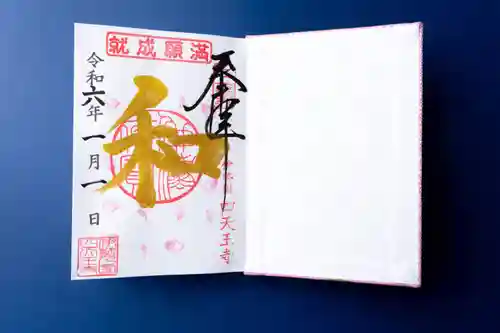 就成願満
奉拝
和
四天王寺
令和六年一月一日